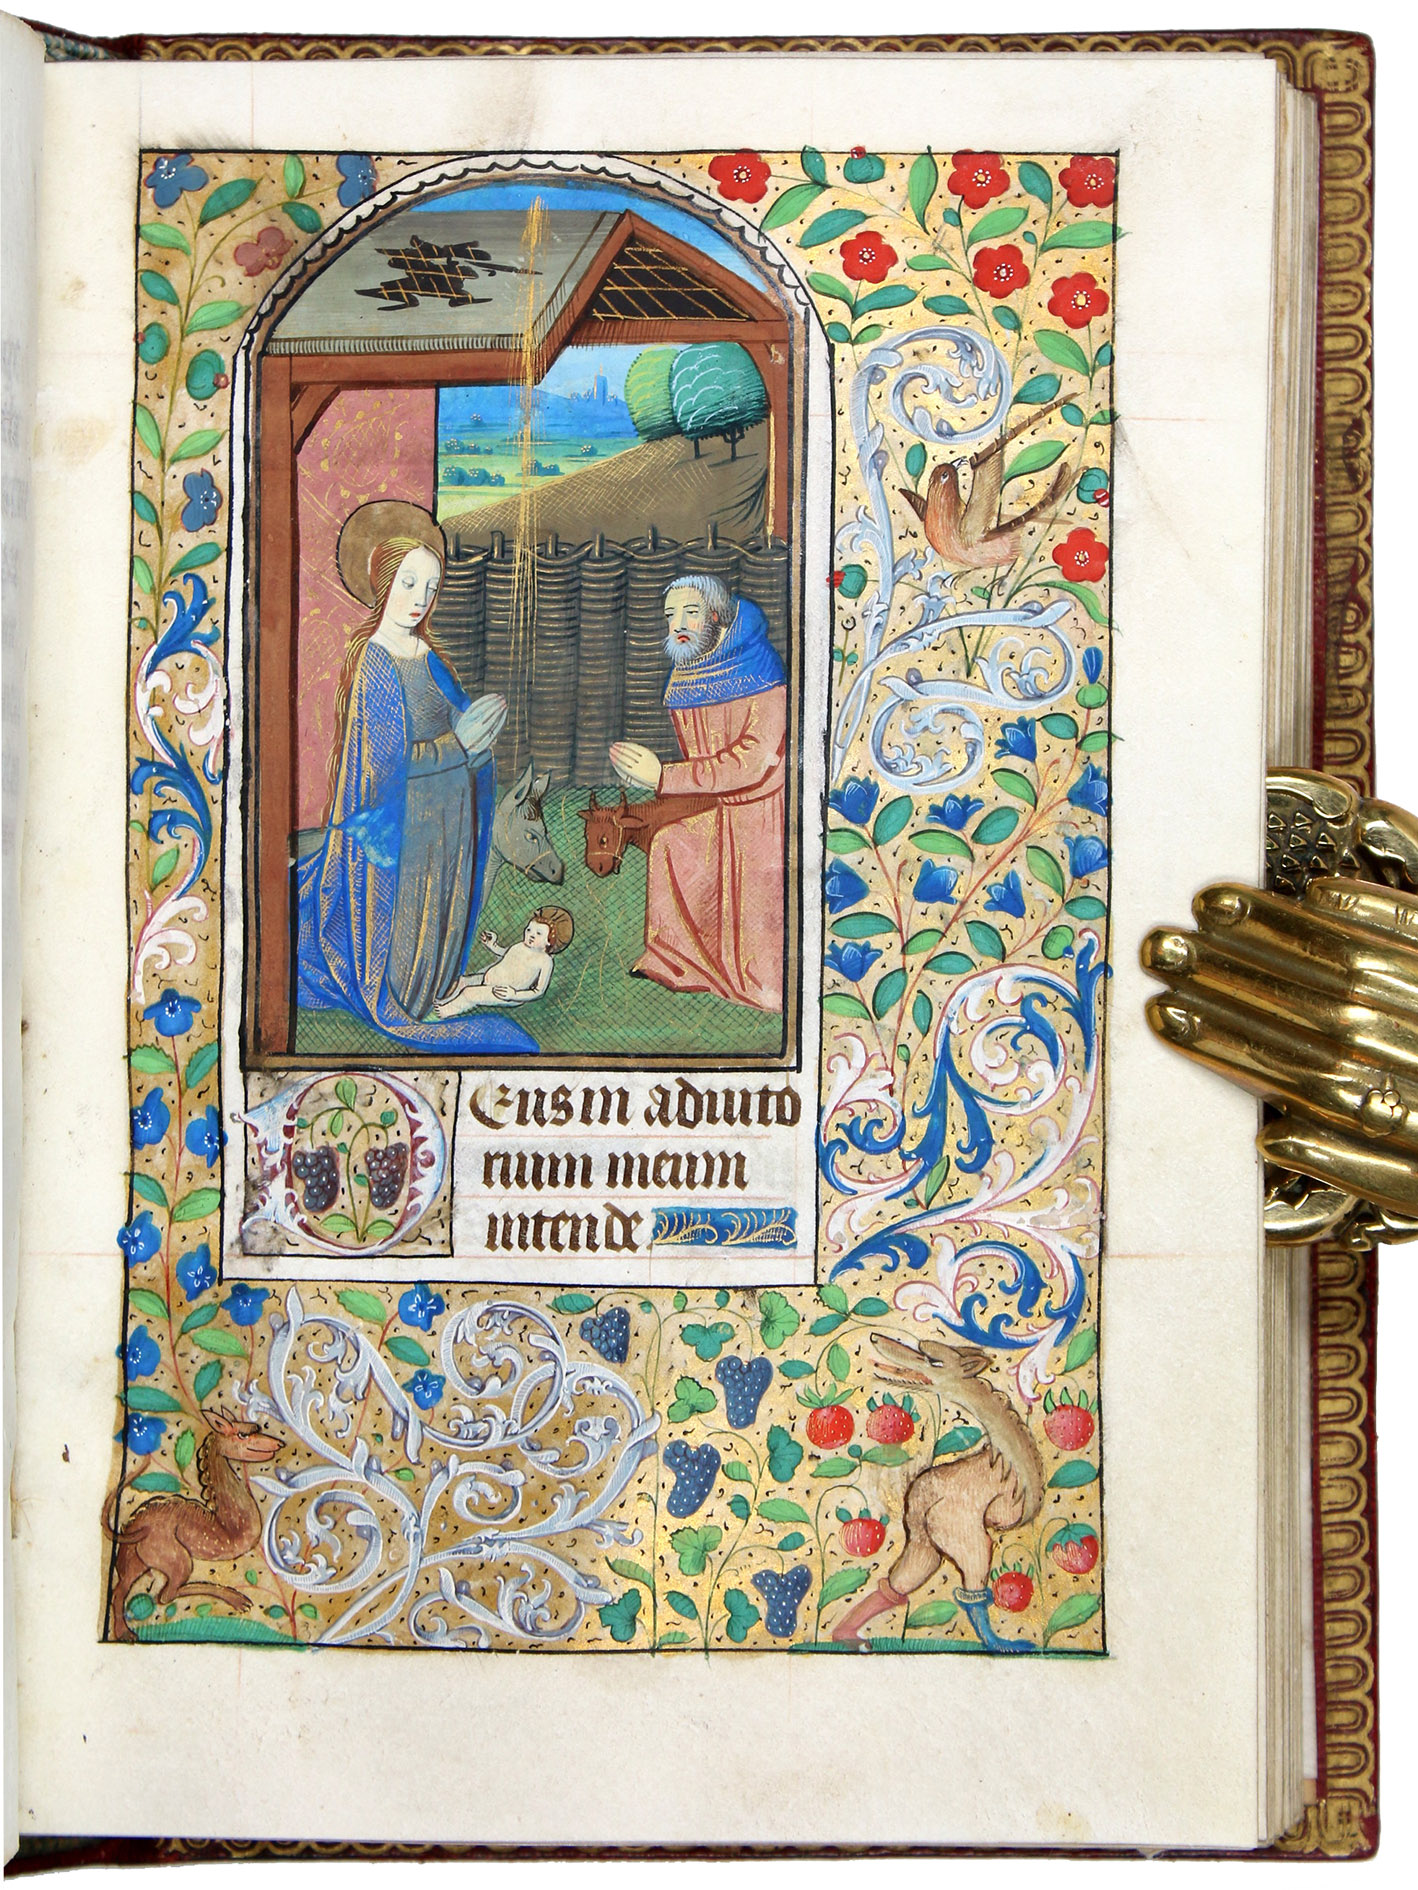 Deus in adiuto
rium meum
intende